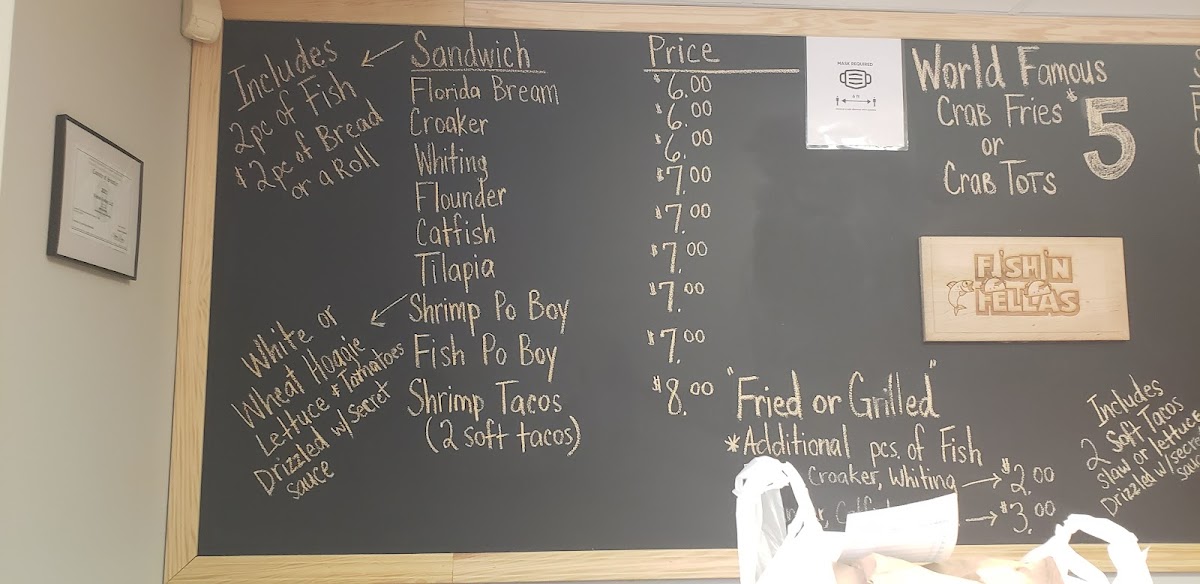 Includes
2pc of Fish
& 2pc of Bread
or a Roll
Sandwich Price
Florida Bream $6.00
Croaker $6.00
Whiting $6.00
Flounder $7.00
Catfish $7.00
Tilapia $7.00
Shrimp Po Boy $7.00
Fish Po Boy $7.00
Shrimp Tacos $8.00
(2 soft tacos)
White or
Wheat Hoagie
Lettuce & Tomatoes
Drizzled w/ Secret
sauce
MASK REQUIRED
6 ft
World Famous
Crab Fries $5
or
Crab Tots
FISHIN
FELLAS
"Fried or Grilled"
*Additional pcs. of Fish
Croaker, Whiting → $2.00
→ $3.00
Includes
2 Soft Tacos
slaw or lettuce
Drizzled w/secre
sau